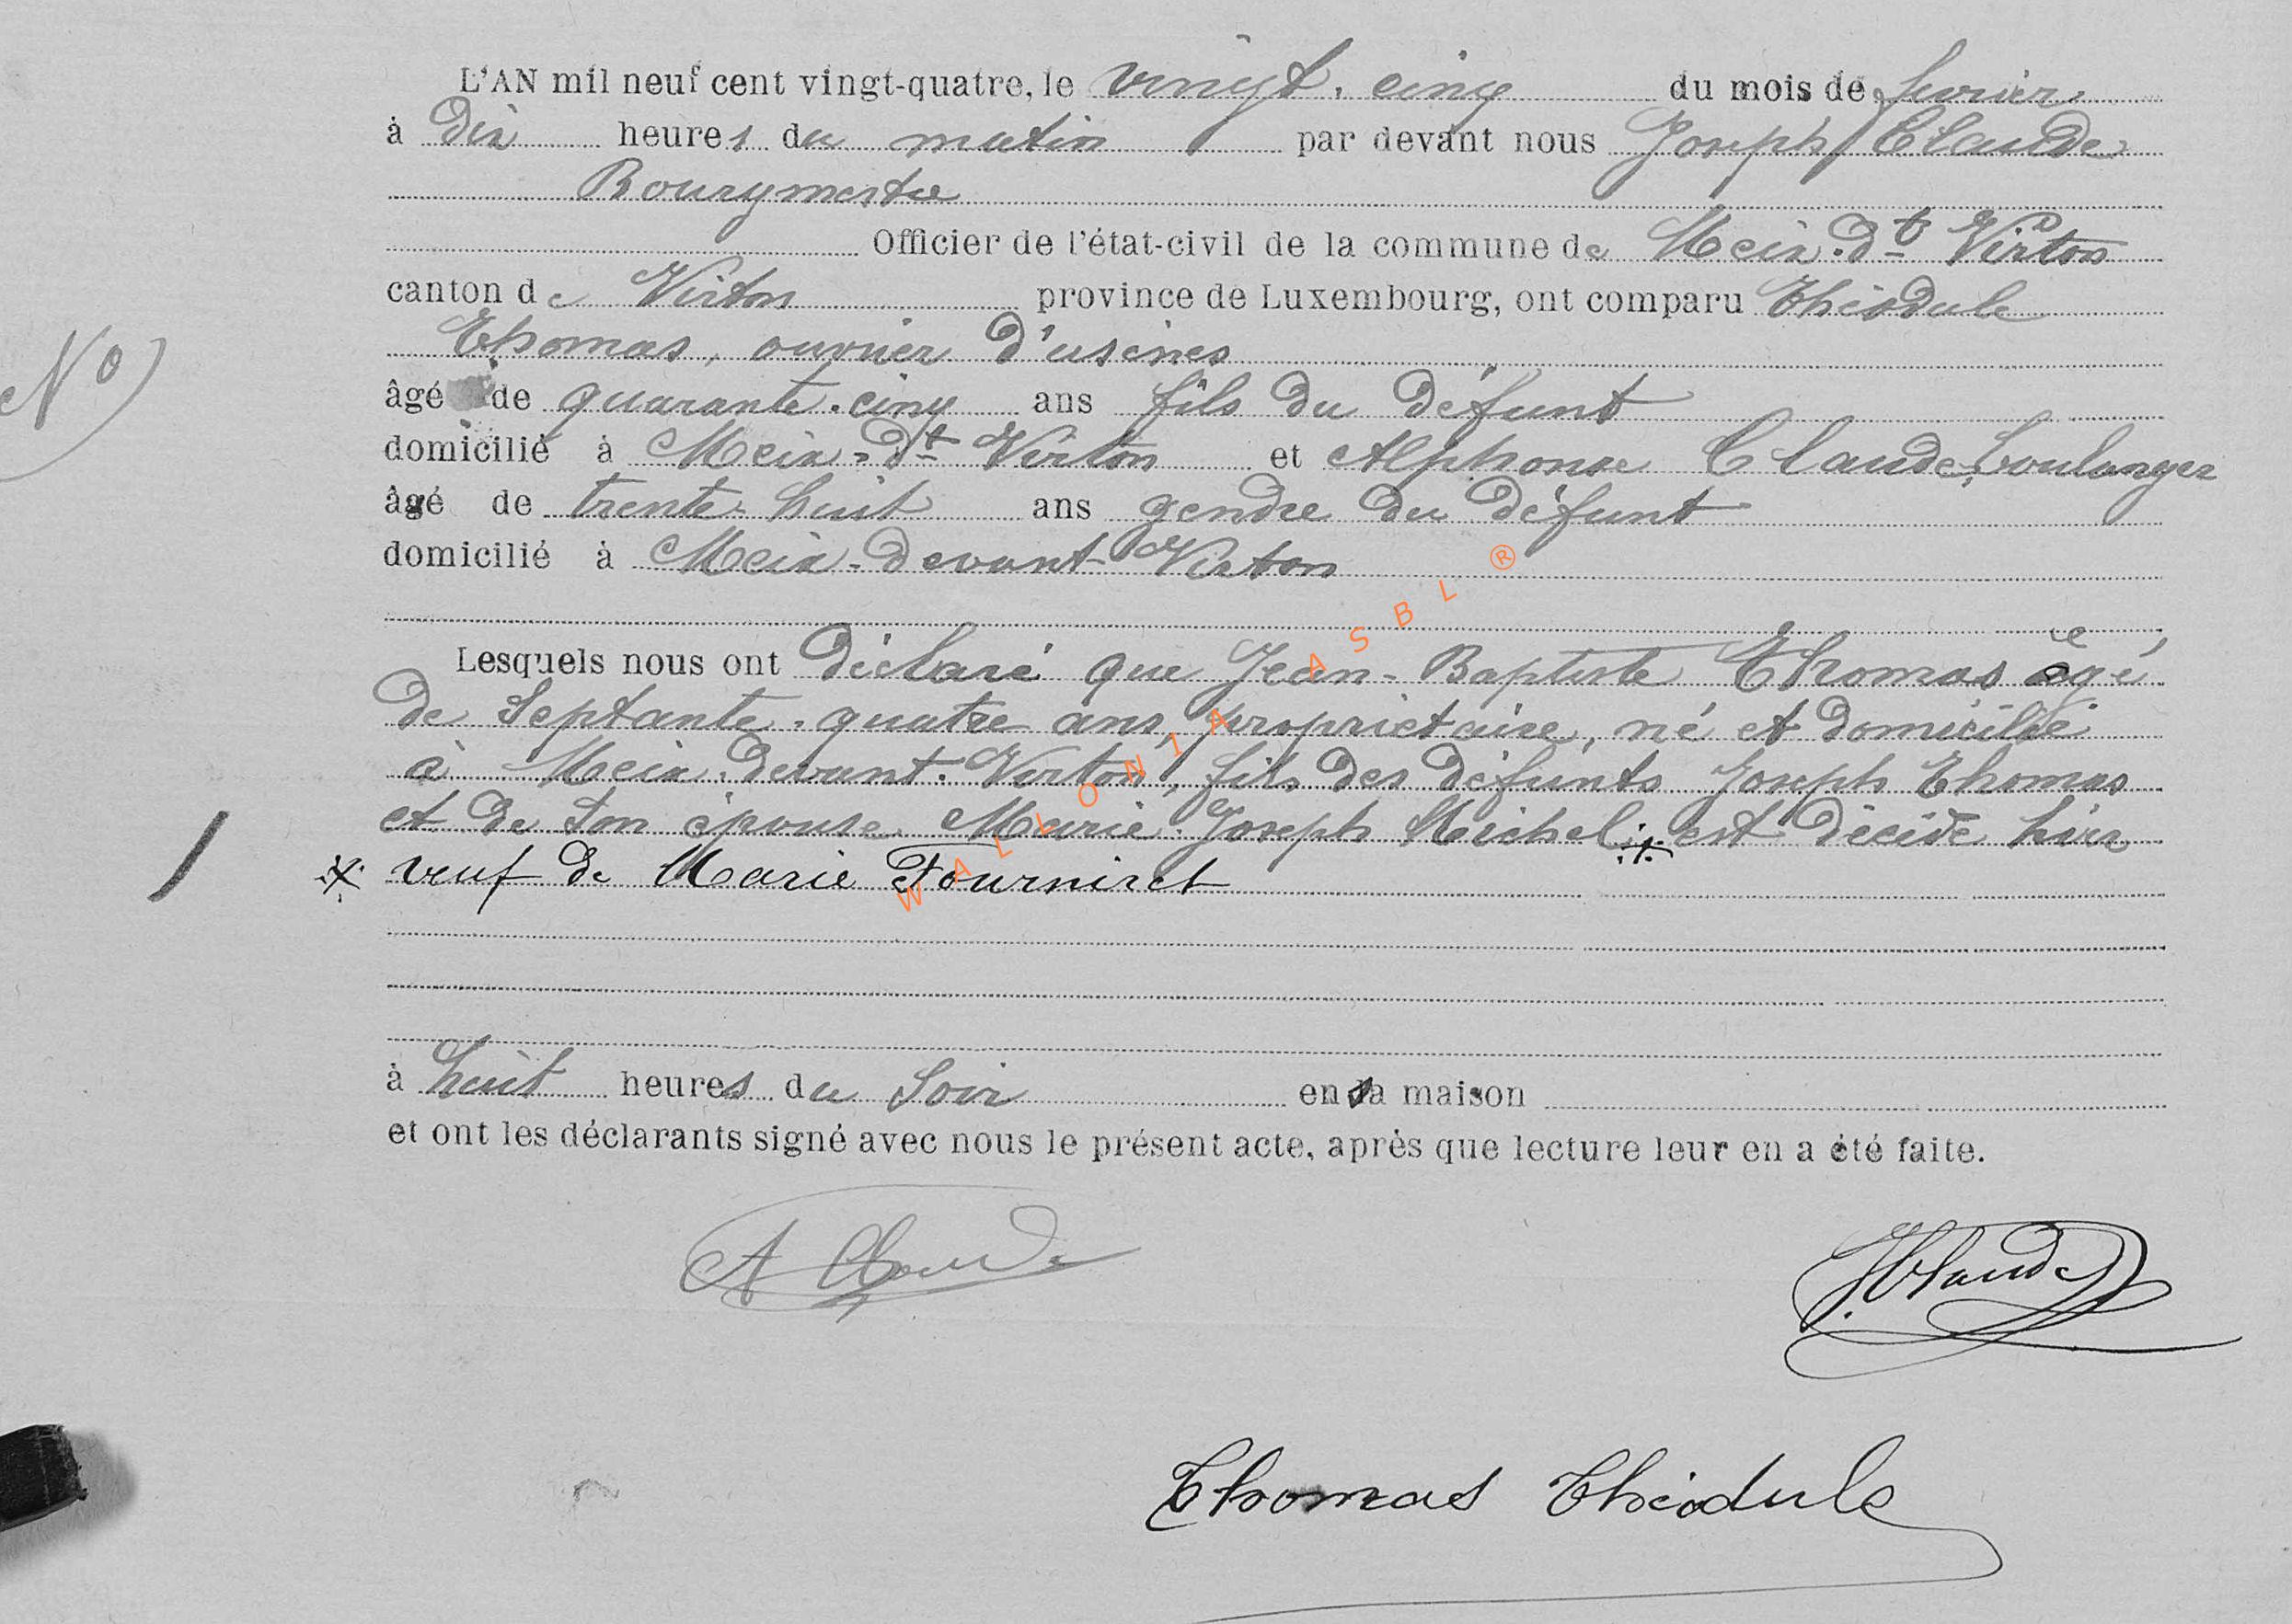 L'AN mil neuf cent vingt-quatre, le vingt-cinq du mois de février
à dix heures du matin par devant nous Joseph Claude
Bourgmestre
Officier de l'état-civil de la commune de Meix-dt Virton
canton de Virton province de Luxembourg, ont comparu Théodule
Thomas, ouvrier d'usines
âgé de quarante-cinq ans fils du défunt
domicilié à Meix-dt Virton et Alphonse Claude, boulanger
âgé de trente-huit ans gendre du défunt
domicilié à Meix-devant-Virton
Lesquels nous ont déclaré que Jean-Baptiste Thomas âgé
de Septante-quatre ans, propriétaire, né et domicilié
à Meix-devant-Virton, fils des défunts Joseph Thomas
et de son épouse Marie-Joseph Michel x est décédé hier
x veuf de Marie Fourniret
à huit heures du Soir en sa maison
et ont les déclarants signé avec nous le présent acte, après que lecture leur en a été faite.
A Claude
J. Claude
Thomas Théodule
No
WALLONIA ASBL ®